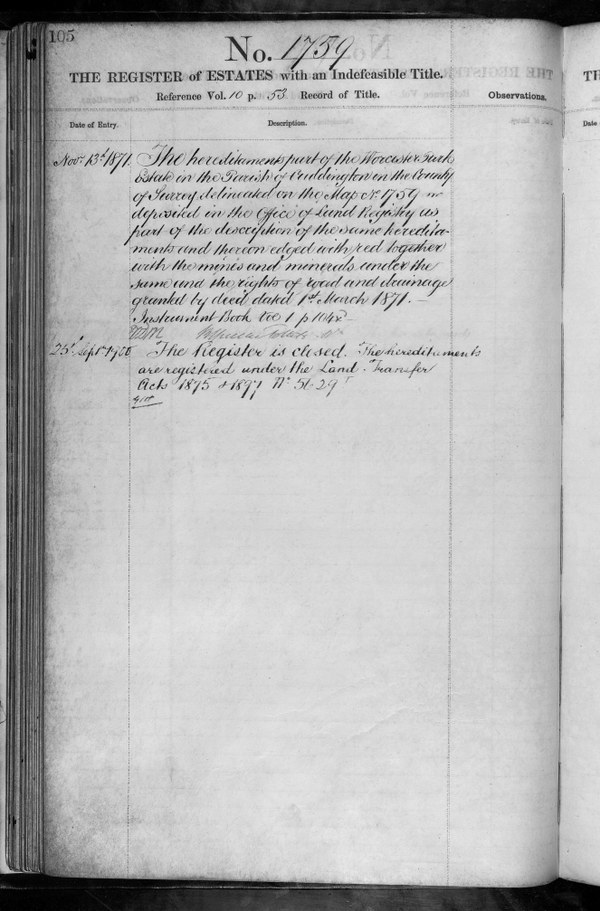 105
No. 1759
THE REGISTER of ESTATES with an Indefeasible Title.
Reference Vol. 10 p. 53 Record of Title.
Observations.
Date of Entry.
Description.
Novr 13th 1871. The hereditaments part of the Worcester Park
Estate in the Parish of Cuddington in the County
of Surrey delineated on the Map No 1759
deposited in the Office of Land Registry as
part of the description of the same heredita-
ments and thereon edged with red together
with the mines and minerals under the
same and the rights of road and drainage
granted by deed dated 1st March 1871. —
Instrument Book voc 1 p 1042
25th Septr 1900 The Register is closed. The hereditaments
are registered under the Land Transfer
Acts 1875 & 1897 No 5629